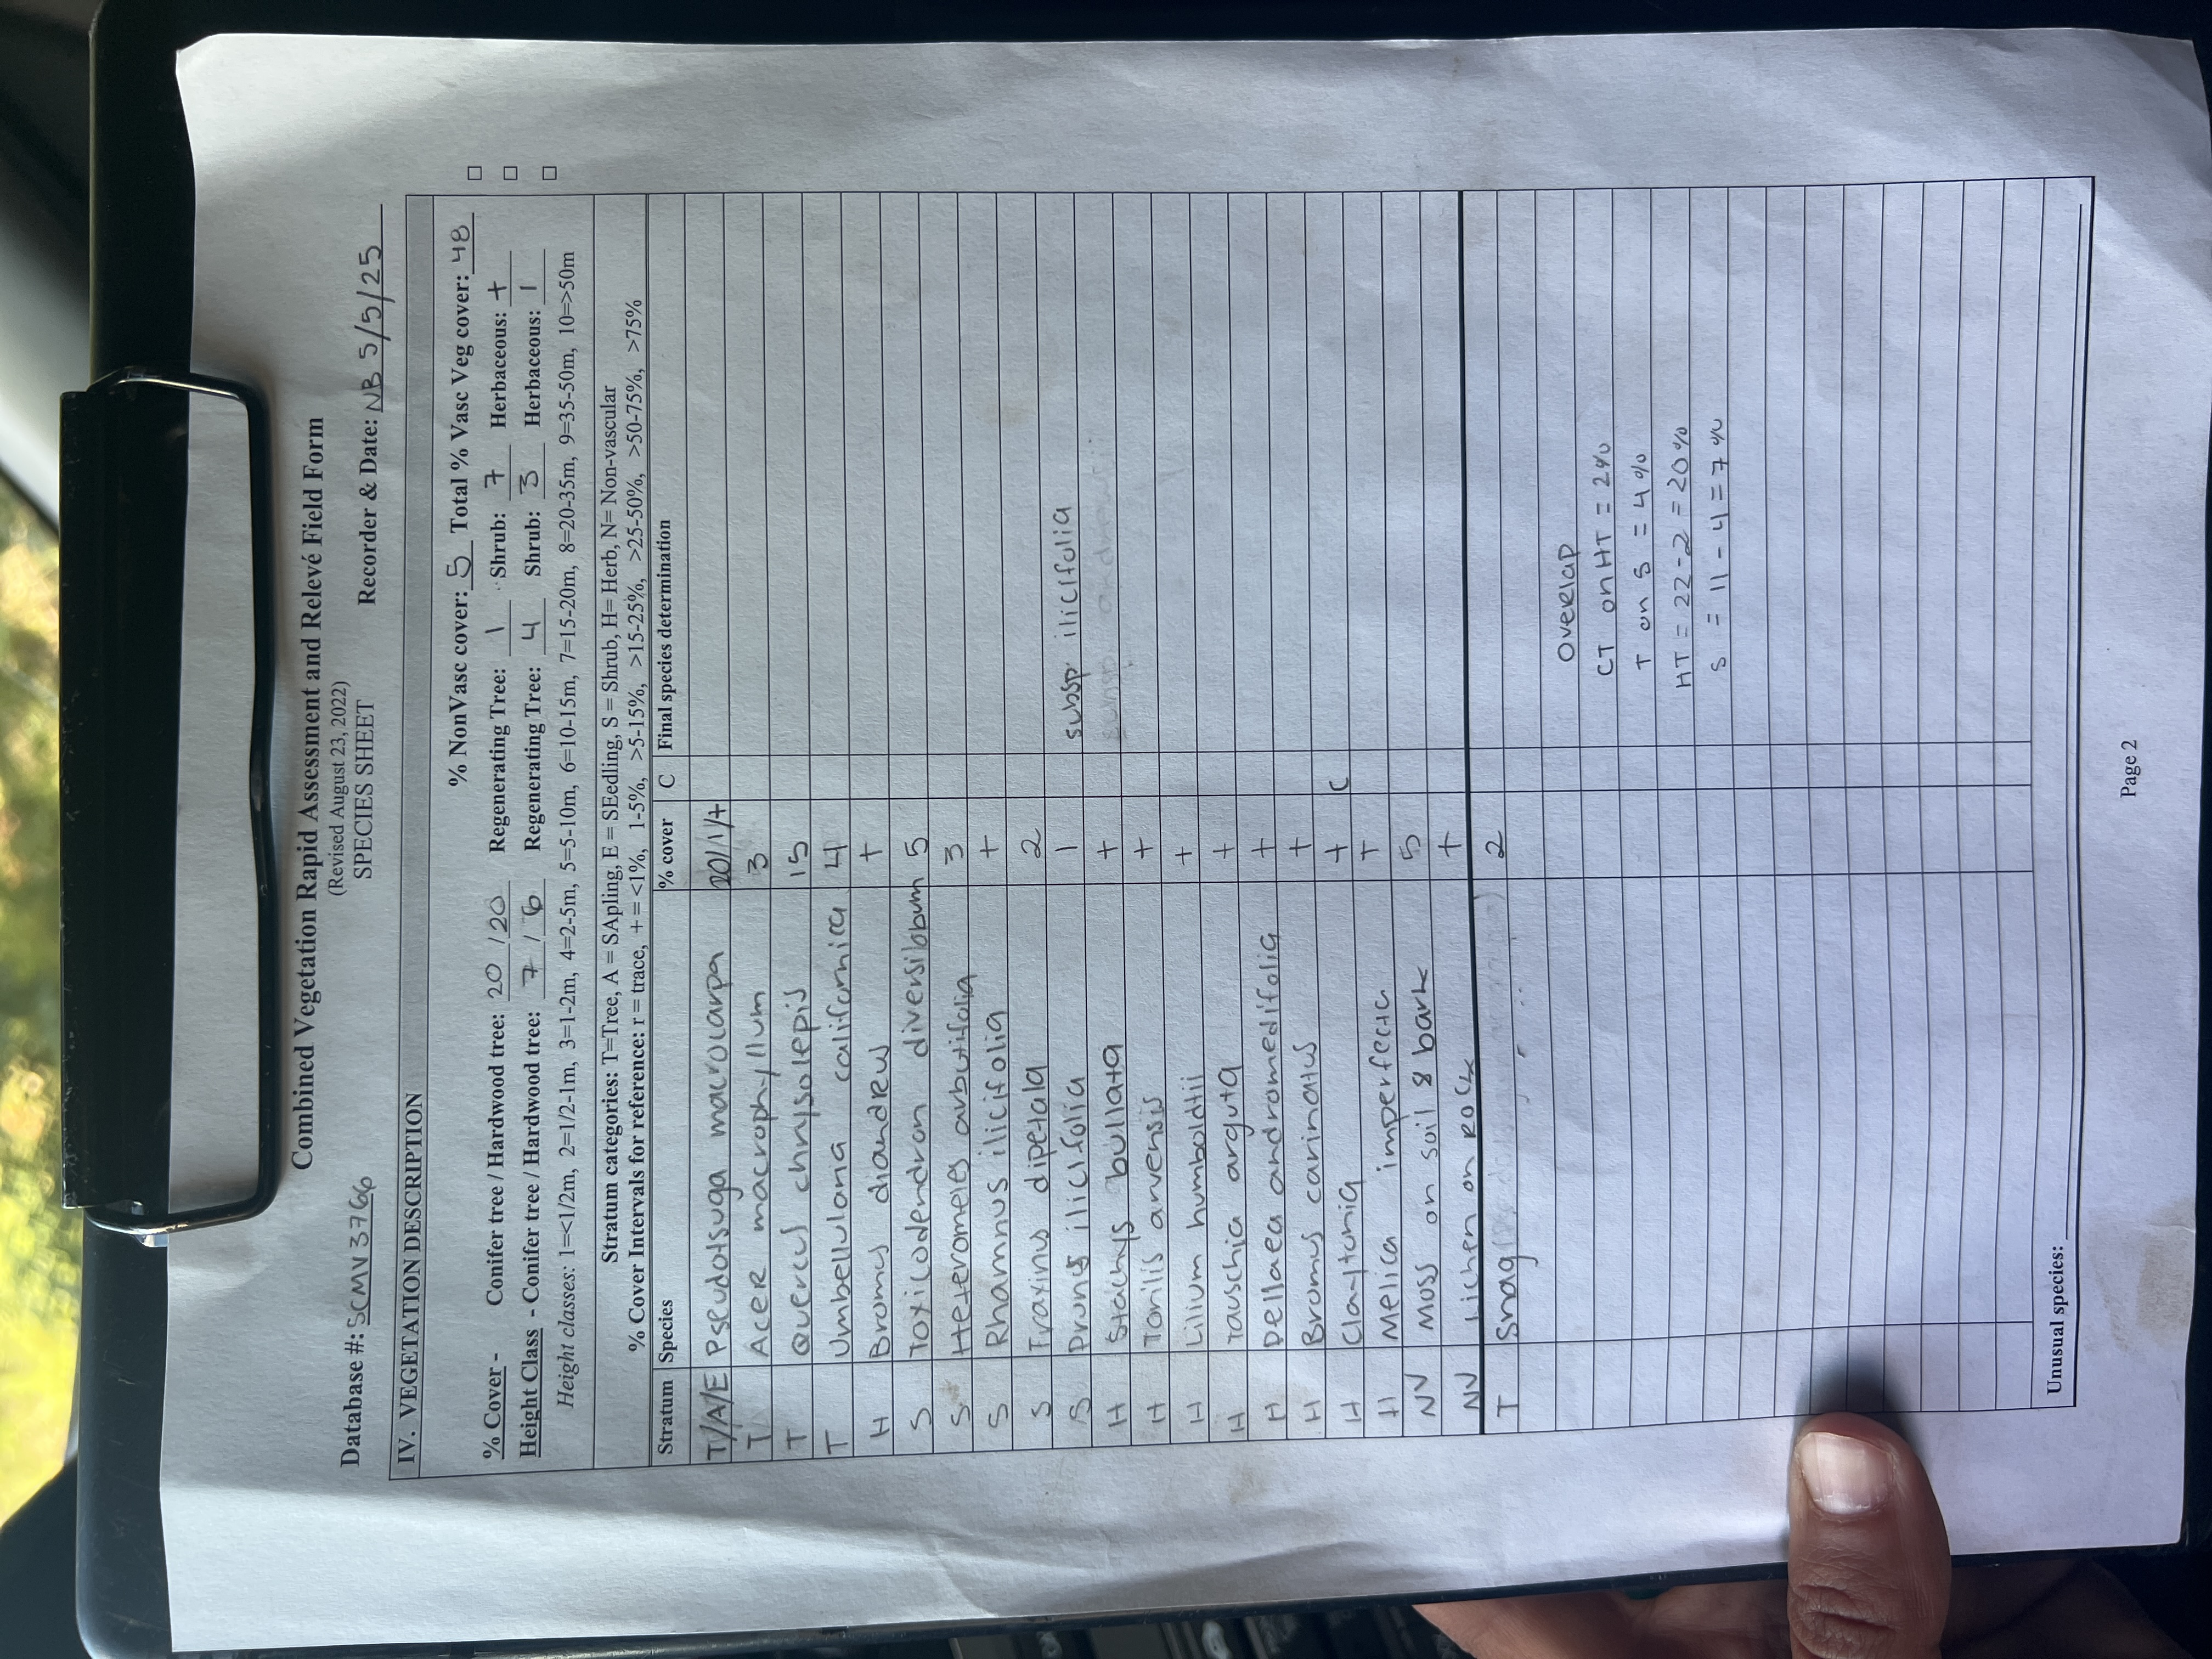 Combined Vegetation Rapid Assessment and Relevé Field Form
(Revised August 23, 2022)
SPECIES SHEET
Database #: SCMV3766 Recorder & Date: NB 5/5/25
IV. VEGETATION DESCRIPTION
% NonVasc cover: 5 Total % Vasc Veg cover: 48
% Cover - Conifer tree / Hardwood tree: 20 / 20 Regenerating Tree: 1 Shrub: 7 Herbaceous: +
Height Class - Conifer tree / Hardwood tree: 7 / 6 Regenerating Tree: 4 Shrub: 3 Herbaceous: 1
Height classes: 1=<1/2m, 2=1/2-1m, 3=1-2m, 4=2-5m, 5=5-10m, 6=10-15m, 7=15-20m, 8=20-35m, 9=35-50m, 10=>50m
Stratum categories: T=Tree, A = SApling, E = SEedling, S = Shrub, H= Herb, N= Non-vascular
% Cover Intervals for reference: r = trace, + = <1%, 1-5%, >5-15%, >15-25%, >25-50%, >50-75%, >75%
Stratum Species % cover C Final species determination
T/A/E Pseudotsuga macrocarpa 20/1/+
T Acer macrophyllum 3
T Quercus chrysolepis 15
T Umbellularia californica 4
H Bromus diandrus +
S Toxicodendron diversilobum 5
S Heteromeles arbutifolia 3
S Rhamnus ilicifolia +
S Fraxinus dipetala 2
S Prunus ilicifolia 1 subsp ilicifolia
H Stachys bullata +
H Torilis arvensis +
H Lilium humboldtii +
H Tauschia arguta +
H Pellaea andromedifolia +
H Bromus carinatus +
H Claytonia + C
H Melica imperfecta +
NV Moss on soil & bark 5
NV Lichen on Rock +
T Snag 2
OVERLAP
CT on HT = 2%
T on S = 4%
HT = 22 - 2 = 20%
S = 11 - 4 = 7%
Unusual species:
Page 2